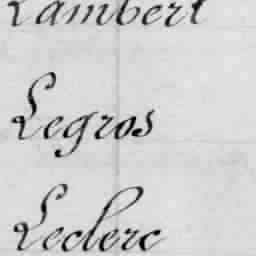 Lambert
Legros
Leclerc